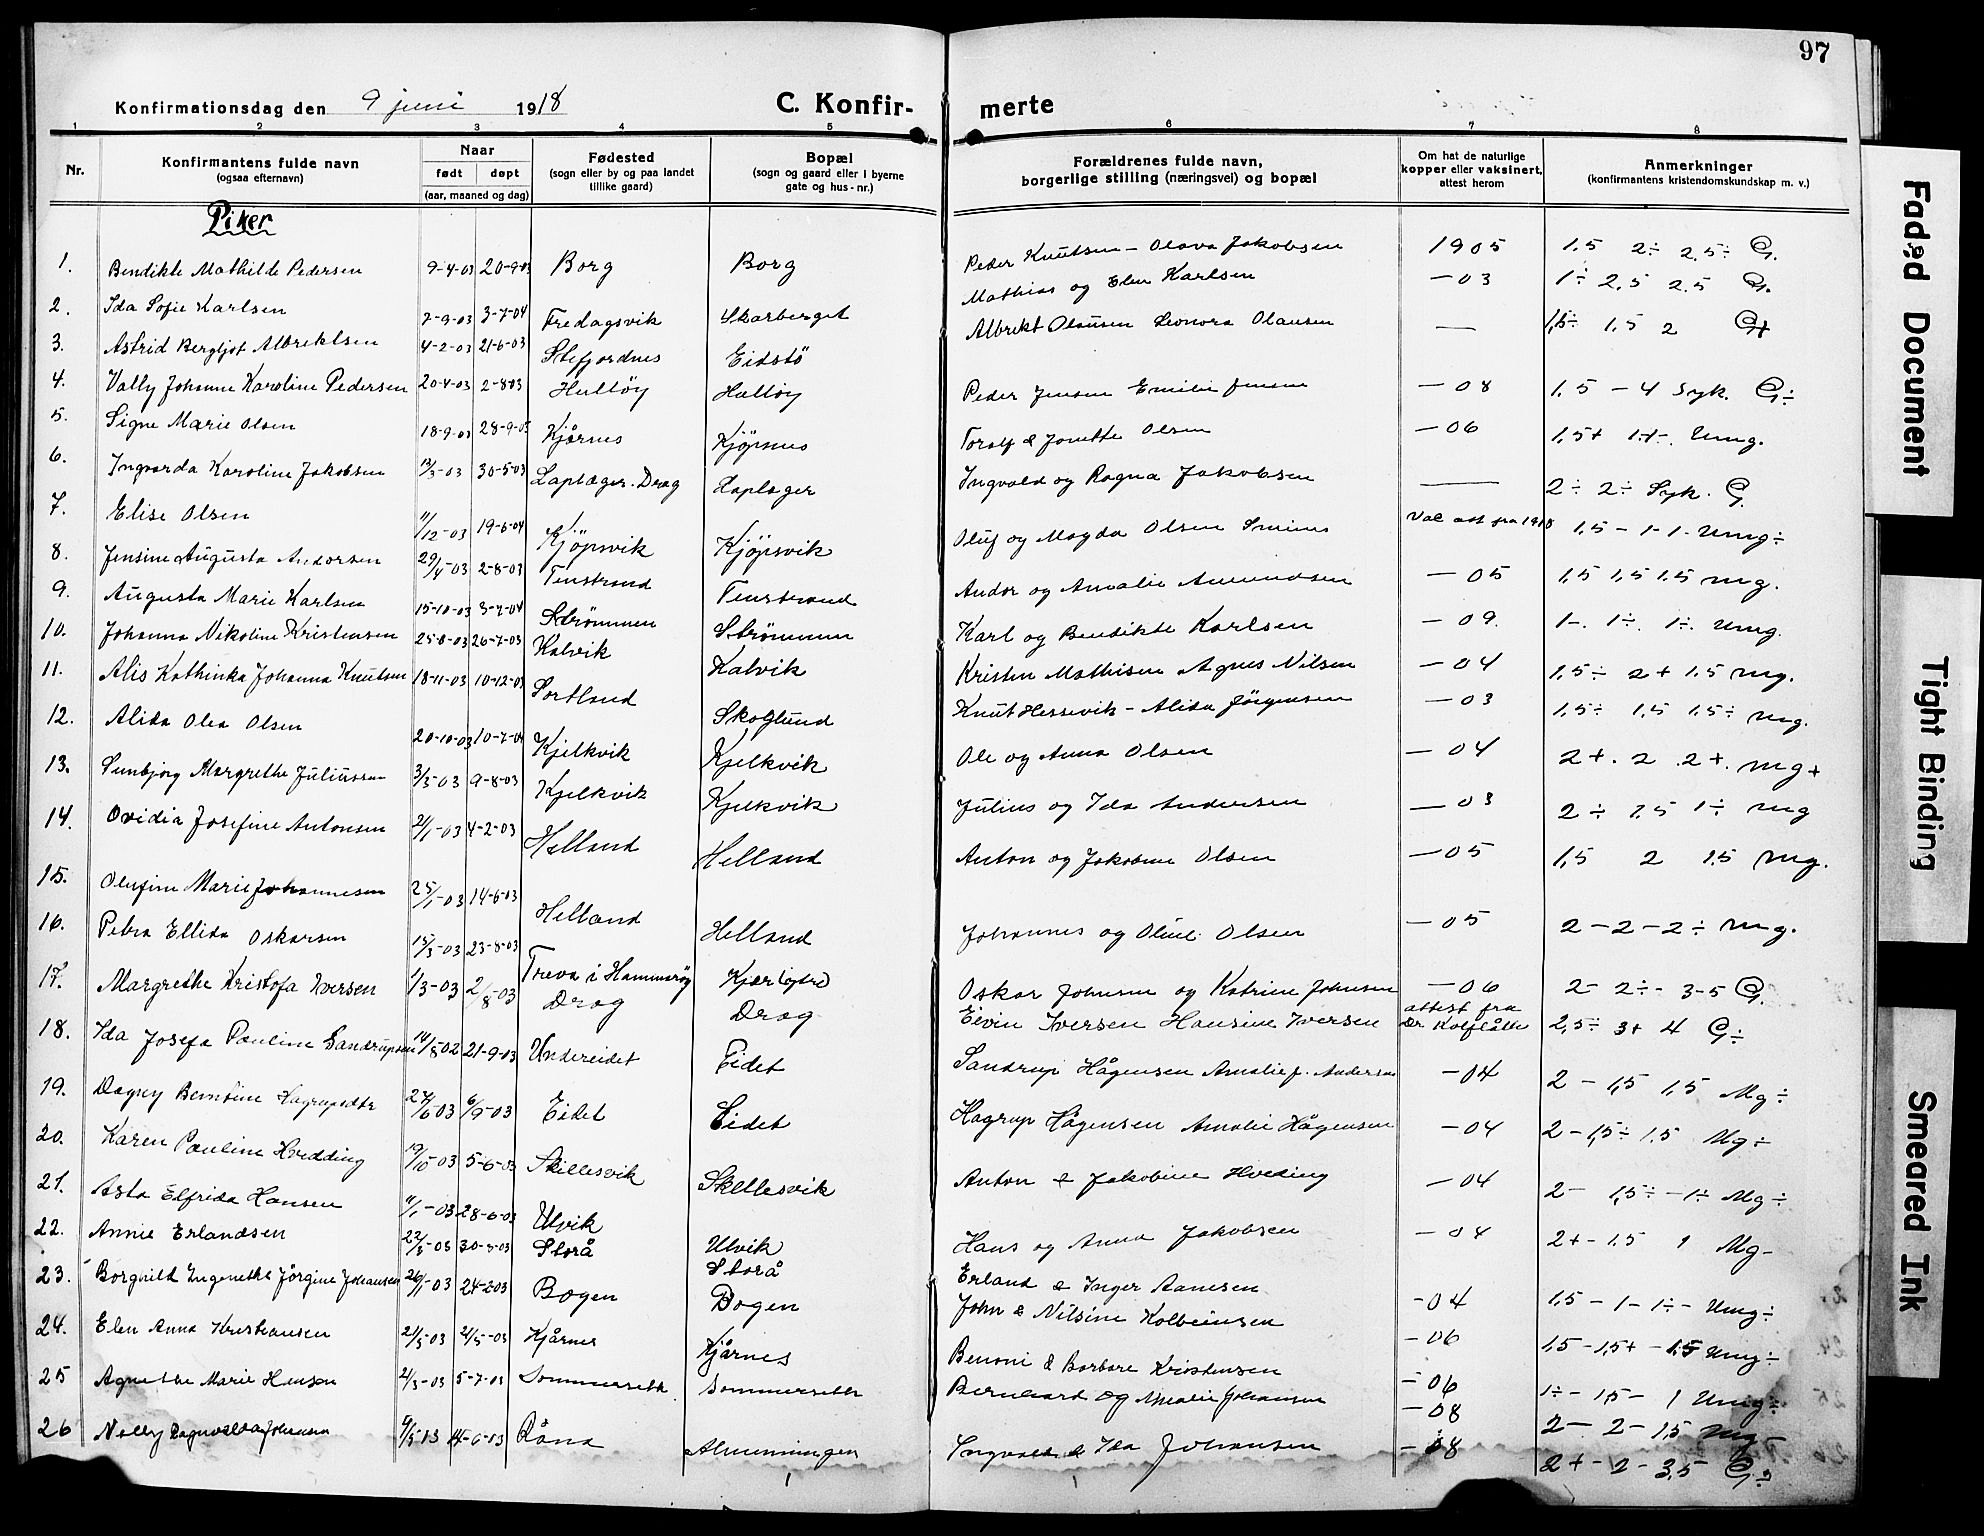 97
Konfirmationsdag den 9 juni 1918
C. Konfir-merte
1 2 3 4 5 6 7 8
Nr.
Konfirmantens fulde navn
(ogsaa efternavn)
Naar
født døpt
(aar, maaned og dag)
Fødested
(sogn eller by og paa landet
tillike gaard)
Bopæl
(sogn og gaard eller i byerne
gate og hus-nr.)
Forældrenes fulde navn,
borgerlige stilling (næringsvei) og bopæl
Om hat de naturlige
kopper eller vaksinert,
attest herom
Anmerkninger
(konfirmantens kristendomskundskap m. v.)
Piker
1. Bendikte Mathilde Pedersen 9-4-03 20-9-03 Borg Borg Peder Knutsen - Olava Jakobsen 1905 1,5 2÷ 2,5÷ G.
2. Ida Sofie Karlsen 7-9-03 3-7-04 Fredagsvik Skarberget Mathias og Elen Karlsen -03 1÷ 2,5 2,5 G.
3. Astrid Bergljot Albriktsen 4-2-03 21-6-03 Stefjordnes Eidstö Albrikt Olausen Leonora Olausen — 1,5÷ 1,5 2 G+
4. Vally Johanne Karoline Pedersen 20-4-03 2-8-03 Hulløy Hulløy Peder Jensen Emilie Jensen -08 1,5 - 4 Syk. G÷
5. Signe Marie Olsen 18-9-03 28-9-03 Kjårnes Kjøpnes Toralf & Jonette Olsen -06 1,5+ 1+-. Umg.
6. Ingvarda Karoline Jakobsen 12/3-03 30-5-03 Laplæger. Drag Laplager Ingvald og Ragna Jakobsen — 2÷ 2÷ Syk. G.
7. Elise Olsen 11/12-03 19-6-04 Kjöpsvik Kjöpsvik Oluf og Magda Olsen Vac att fra 1918 1,5 - 1-1- Umg÷
8. Jensine Augusta Andorsen 29/4-03 2-8-03 Tenstrand Tenstrand Andor og Amalie Amundsen -05 1,5 1,5 1,5 Mg.
9. Augusta Marie Karlsen 15-10-03 3-7-04 Strömmen Strömmen Karl og Bendikte Karlsen -09. 1-. 1÷. 1÷. Umg.
10. Johanna Nikoline Kristensen 25-8-03 26-7-03 Kalvik Kalvik Kristen Mathisen Agnes Nilsen -04 1,5÷ 2+ 1,5 Mg.
11. Alis Kathinka Johanna Knutsen 18-11-03 10-12-03 Sortland Skoglund Knut Hessevik - Alida Jörgensen -03 1,5÷ 1,5 1,5÷ Mg.
12. Alida Olea Olsen 20-10-03 10-7-04 Kjelkvik Kjelkvik Ole og Anna Olsen -04 2+. 2 .2+. Mg+
13. Margrethe Juliussen 3/5-03 9-8-03 Kjelkvik Kjelkvik Julius og Ida Andersen -03 2÷ 1,5 1÷ Mg
14. Ovidia Josefine Antonsen 21/1-03 4-2-03 Helland Helland Anton og Jakobine Olsen -05 1,5 2 1,5 Mg.
15. Olufine Marie Johannesen 25/1-03 14-6-03 Helland Helland Johannes og Oline Olsen -05 2-2-2÷ Mg.
16. Petra Ellida Oskarsen 15/3-03 23-8-03 Treva i Hammerøy Oskar Johnsen og Katrine Johnsen -06 2- 2÷- 3-5 G.
17. Margrethe Kristofa Iversen 1/3-03 2/8-03 Drag Drag Eivin Iversen Hansine Iversen attest fra Dr 2,5÷ 3+ 4 G÷
18. Ida Josefa Pauline Sandrupsen 14/8-02 21-9-03 Undereidet Eidet Sandrup Hågensen Amalie J. Andersen -04 2-1,5 1,5 Mg÷
19. Dagny Berntine Hagrupsdtr 27/6-03 6/9-03 Eidet Eidet Hagrup Hågensen Amalie Hågensen -04 2-1,5÷ 1,5 Mg÷
20. Karen Pauline Hvedding 19/10-03 5-6-03 Skillesvik Skillesvik Anton & Jakobine Hveding -04 2- 1,5÷-1÷ Mg÷
21. Asta Elfrida Hansen 11/1-03 28-6-03 Ulvik Ulvik Hans og Anna Jakobsen -04 2+-1.5 1 Mg-
22. Annie Erlandsen 22/5-03 30-8-03 Storå Storå Erland & Inger Aanesen -04 1,5-1-1÷- Umg÷
23. Borghild Ingenethe Jörgine Johansen 26/1-03 24-2-03 Bogen Bogen John & Nilsine Kolbeinsen -06 1,5-1,5+-1,5 Umg÷
24. Elen Anna Kristiansen 21/3-03 2/5-03 Kjårnes Kjårnes Benoni & Barbara Kristensen -06 1÷-1,5-1 Umg÷
25 Agnethe Marie Hansen 2/3-03 5-7-03 Sommerseth Sommerseth Bernhard og Amalie Johansen -08 2-2-1,5 Mg-
26 Nelly Ragnvalda Johansen 9/5-13 14-6-13 Råna Almenningen Ingvald & Ida Johansen -08 2+-2-3,5 G÷
Faded Document
Tight Binding
Smeared Ink